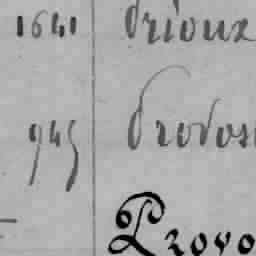 1641 Drioux
945 Provos
Provo